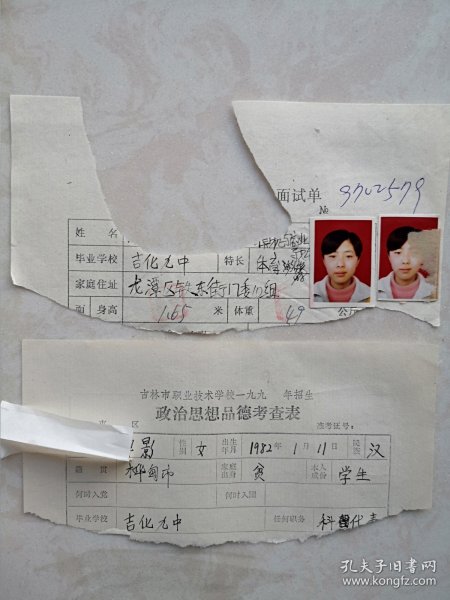 面试单 9702579
№
姓名
毕业学校 吉化九中 特长 体育
家庭住址 龙潭区
面 身高 1.65 米 体重 49 公斤
吉林市职业技术学校一九九 年招生
政治思想品德考查表
区 准考证号:
影 性别 女 出生年月 1982年1月11日 民族 汉
籍贯 桦甸市 家庭出身 贫 本人成份 学生
何时入党 何时入团
毕业学校 吉化九中 任何职务 科代表
孔夫子旧书网
www.kongfz.com